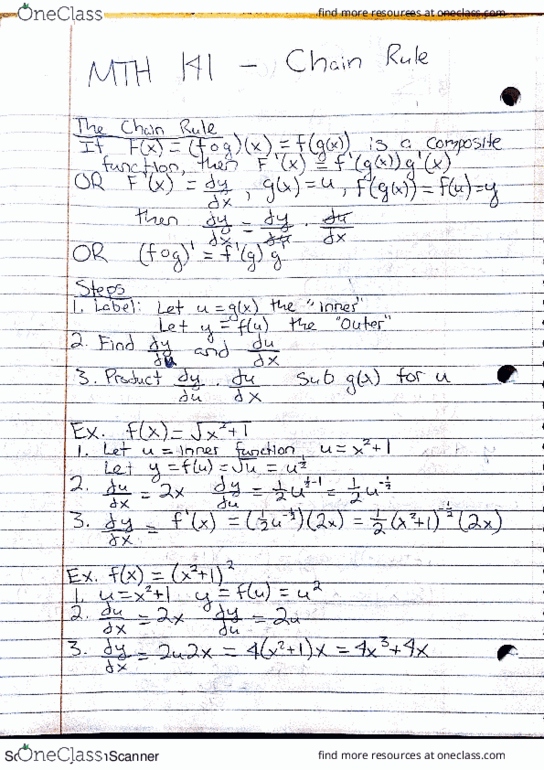 OneClass
find more resources at oneclass.com
MTH 141 - Chain Rule
The Chain Rule
If F(x) = (fog)(x) = f(g(x)) is a composite
function, then F'(x) = f'(g(x))g'(x)
OR F'(x) = dy/dx, g(x)=u, f(g(x))=f(u)=y
then dy/dx = dy/du · du/dx
OR (fog)' = f'(g) g
Steps
1. Label: Let u=g(x) the "inner"
Let y=f(u) the "Outer"
2. Find dy/du and du/dx
3. Product dy/du · du/dx Sub g(x) for u
Ex. f(x)=√x²+1
1. Let u = inner function, u=x²+1
Let y=f(u)=√u = u^½
2. du/dx = 2x dy/du = ½u^(½-1) = ½u^-½
3. dy/dx = f'(x) = (½u^-½)(2x) = ½(x²+1)^-½(2x)
Ex. f(x) = (x²+1)²
1. u=x²+1 y=f(u)=u²
2. du/dx = 2x dy/du = 2u
3. dy/dx = 2u2x = 4(x²+1)x = 4x³+4x
OneClass
Scanner
find more resources at oneclass.com